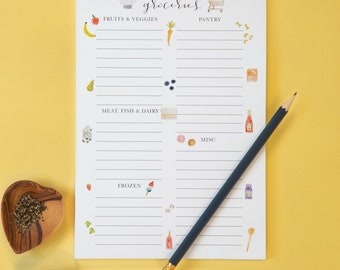 groceries
FRUITS & VEGGIES
PANTRY
MEAT, FISH & DAIRY
MISC
FROZEN